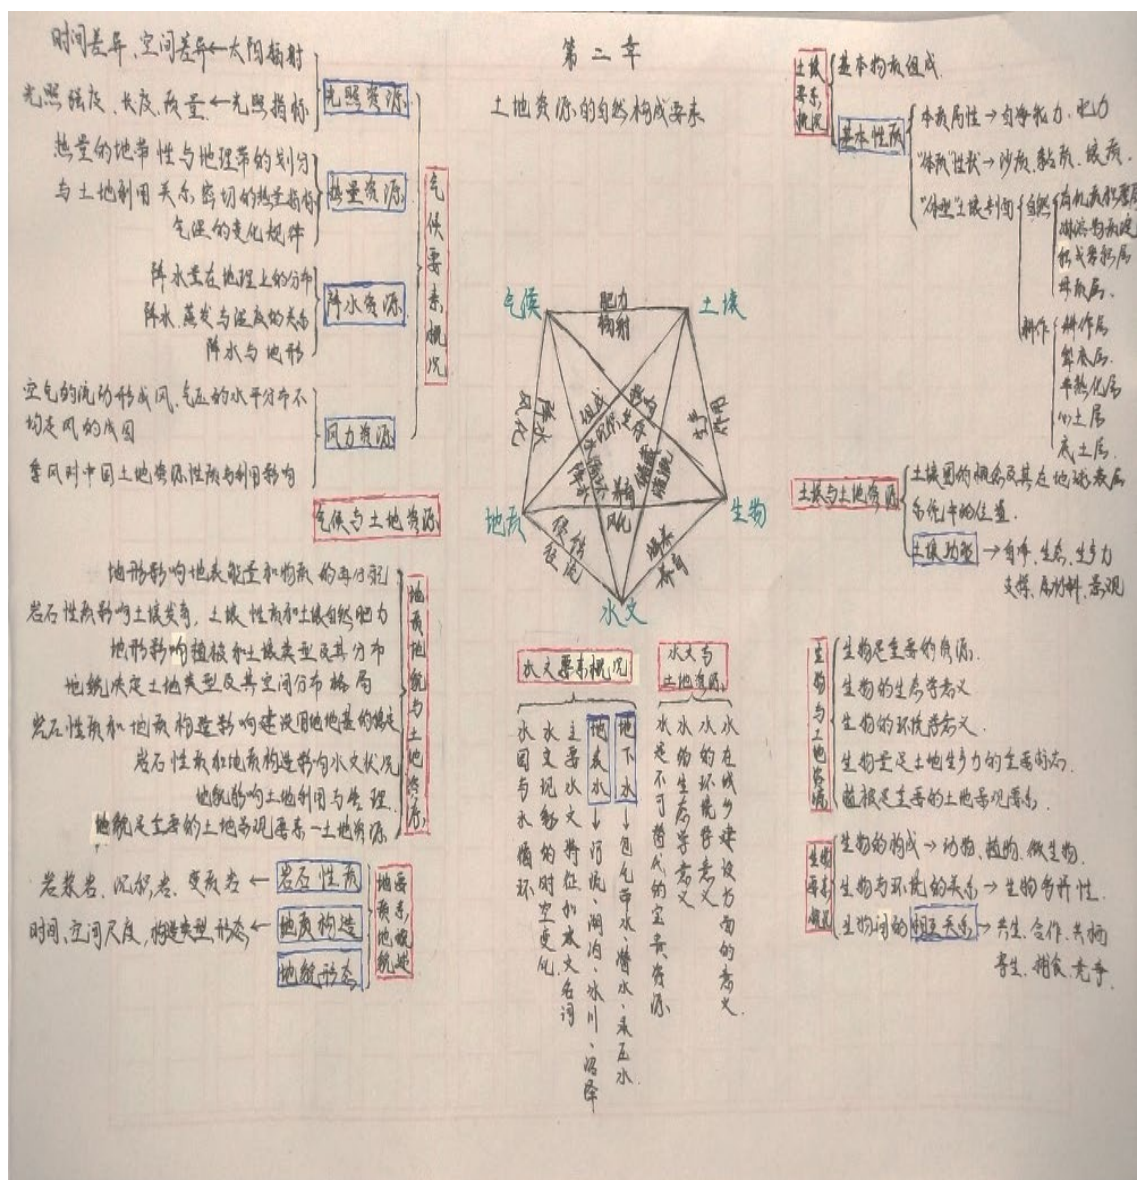 第二章
土地资源的自然构成要素
时间差异、空间差异←太阳辐射
光照强度、长度、质量←光照指标
光照资源
热量的地带性与地理带的划分
与土地利用关系密切的热量指标
气温的变化规律
热量资源
降水量在地理上的分布
降水、蒸发与湿度的关系
降水与地形
降水资源
空气的流动形成风、气压的水平分布不
均是风的成因
季风对中国土地资源性质与利用影响
风力资源
气候要素概况
气候与土地资源
地形影响地表能量和物质的再分配
岩石性质影响土壤发育，土壤性质和土壤自然肥力
地形影响植被和土壤类型及其分布
地貌决定土地类型及其空间分布格局
岩石性质和地质构造影响建设用地地基的稳定
岩石性质和地质构造影响水文状况
地貌影响土地利用与管理
地貌是重要的土地景观要素—土地资源
地质地貌与土地资源
岩浆岩、沉积岩、变质岩←岩石性质
时间、空间尺度，构造类型形态←地质构造
地貌形态
气候
土壤
地质
生物
水文
肥力
辐射
降水
风化
组成
养育
风化
水文要素概况
水圈与水循环
水文现象的时空变化
主要水文特征和水文名词
地表水→河流、湖泊、冰川、沼泽
地下水→包气带水、潜水、承压水
水文与
土地资源
水是不可替代的宝贵资源
水的生态学意义
水的环境学意义
水在城乡建设方面的意义
土壤要素概况
基本物质组成
基本性质
本质属性→自净能力、肥力
"体质"性状→沙质、黏质、壤质
"体型"土壤剖面
自然
母质层
耕作
耕作层
犁底层
半熟化层
心土层
底土层
土壤与土地资源
土壤圈的概念及其在地球表层
系统中的位置
土壤功能→自净、生态、生产力
支撑、原材料、景观
生物与土地资源
生物是重要的资源
生物的生态学意义
生物的环境学意义
生物量是土地生产力的重要标志
植被是重要的土地景观要素
生物要素概况
生物的构成→动物、植物、微生物
生物与环境的关系→生物多样性
生物间的相互关系→共生、合作、共栖
寄生、捕食、竞争